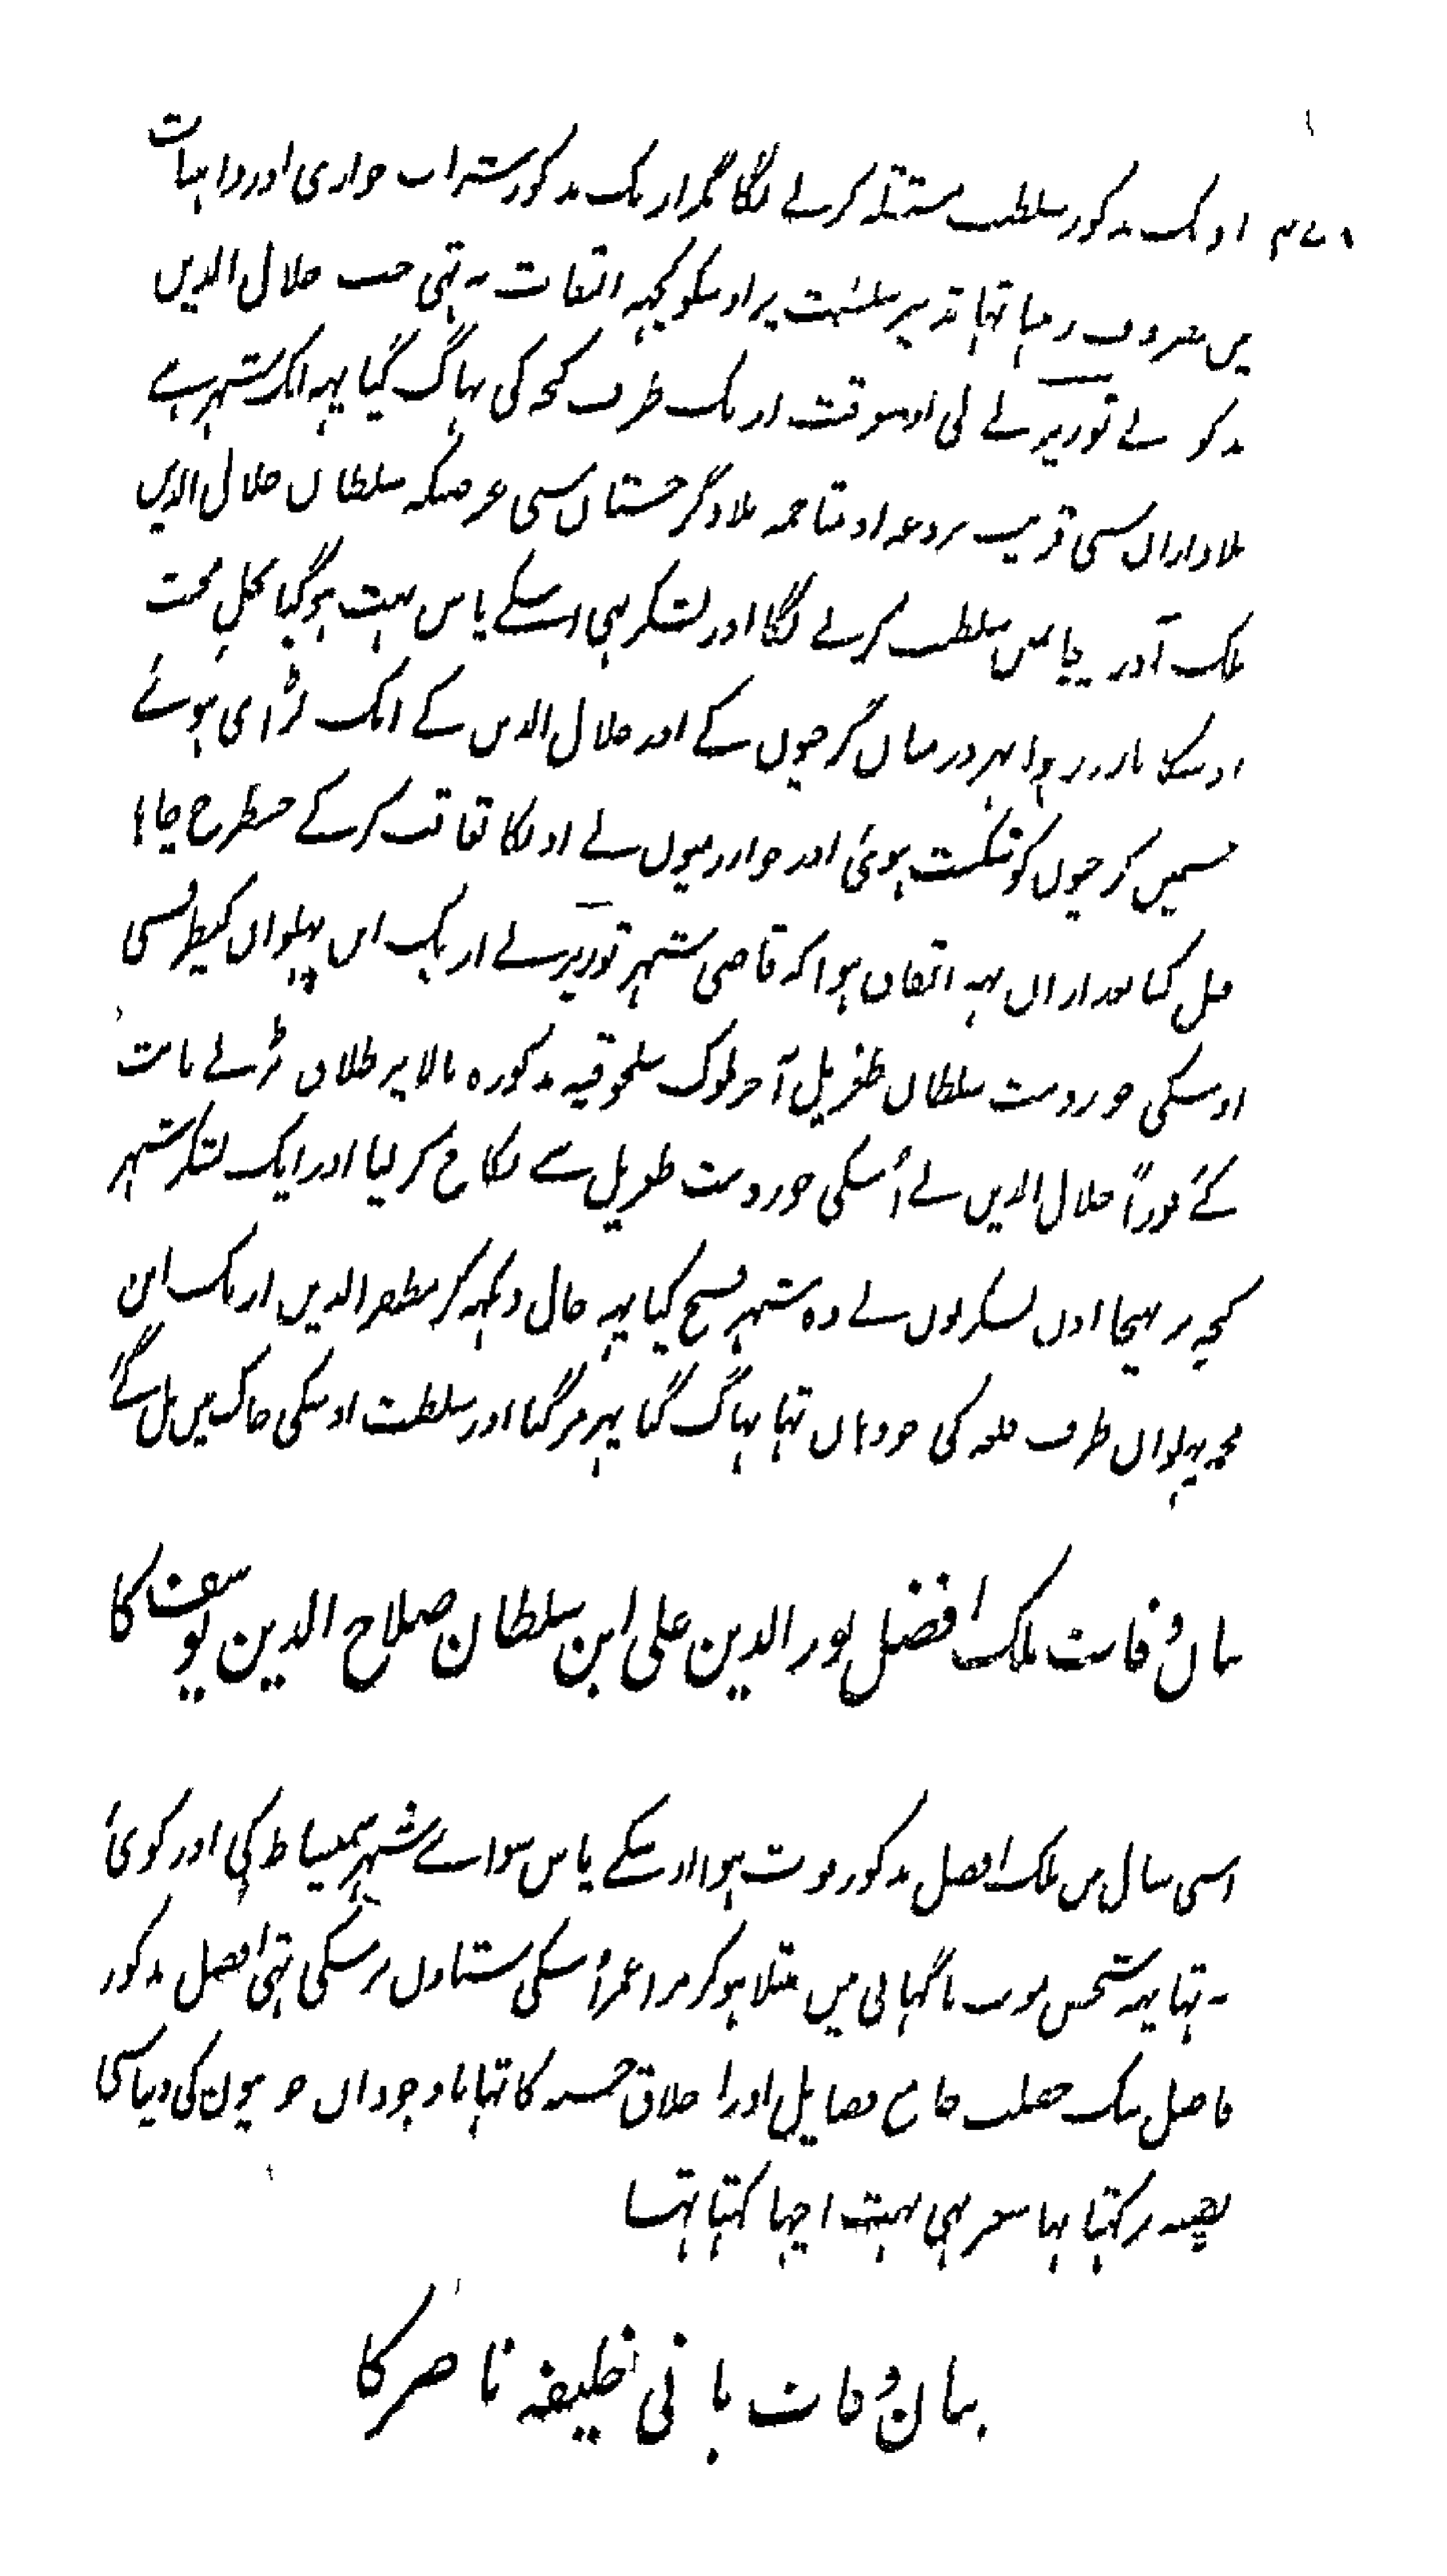 اوزبک مذکور سلطنت مستقلہ کرنے لگا مگر ازبک مذکور شراب خواری اور واہیات
میں مصروف رہتا تہا تدبیر سلطنت پر اوسکو کچہہ التفات نہ تہی جب جلال الدین
مذکور نے توریر لے لی اوسوقت ازبک طرف کنجہ کی بہاگ گیا یہہ ایک شہر ہے
بلاد اران سی قریب بردعہ اور متاخمہ بلاد گرجستان سی غرضکہ سلطان جلال الدین
ملک آذربیجان میں سلطنت کرنے لگا اور لشکر بہی اسکے پاس بہت ہوگیا
اوسکا ہوا پہر درمیان گرجیون کے اور جلال الدین کے ایک لڑائی ہوئے
جسمیں گرجیون کو شکست ہوئی اور خوارزمیون نے اونکا تعاقب کرکے جسطرح چاہا
قتل کیا بعد ازان یہہ اتفاق ہوا کہ قاضی شہر توریر نے ازبک ابن پہلوان کیطرفسی
اوسکی جورو بنت سلطان طغریل آخر ملوک سلجوقیہ مذکورہ بالا پر طلاق پڑنے
کے فوراً جلال الدین نے اُسکی جورو بنت طغریل سے نکاح کر لیا اور ایک لشکر شہر
کنجہ پر بہیجا اون لشکریون نے وہ شہر فتح کیا یہہ حال دیکہہ کر مظفر الدین ازبک ابن
محمد پہلوان طرف قلعہ کی جو وہان تہا بہاگ گیا پہر مر گیا اور سلطنت اوسکی خاک میں مل گئے
بیان وفات ملک افضل نور الدین علی ابن سلطان صلاح الدین یوسف کا
اسی سال میں ملک افضل مذکور فوت ہوا اوسکے پاس سواے شہر سمیساط کی اور کوئی
نہ تہا یہہ شخص موت ناگہانی میں مبتلا ہوکر مرا عمر اُسکی ستاون برسکی تہی افضل مذکور
فاضل نیک خصلت جامع فضایل اور اخلاق حسنہ کا تہا باوجود ان خوبیون کی دنیا کا
نصیبہ نرکہتا تہا شعر بہی بہت اچہا کہتا تہا
بیان وفات پانی خلیفہ ناصر کا